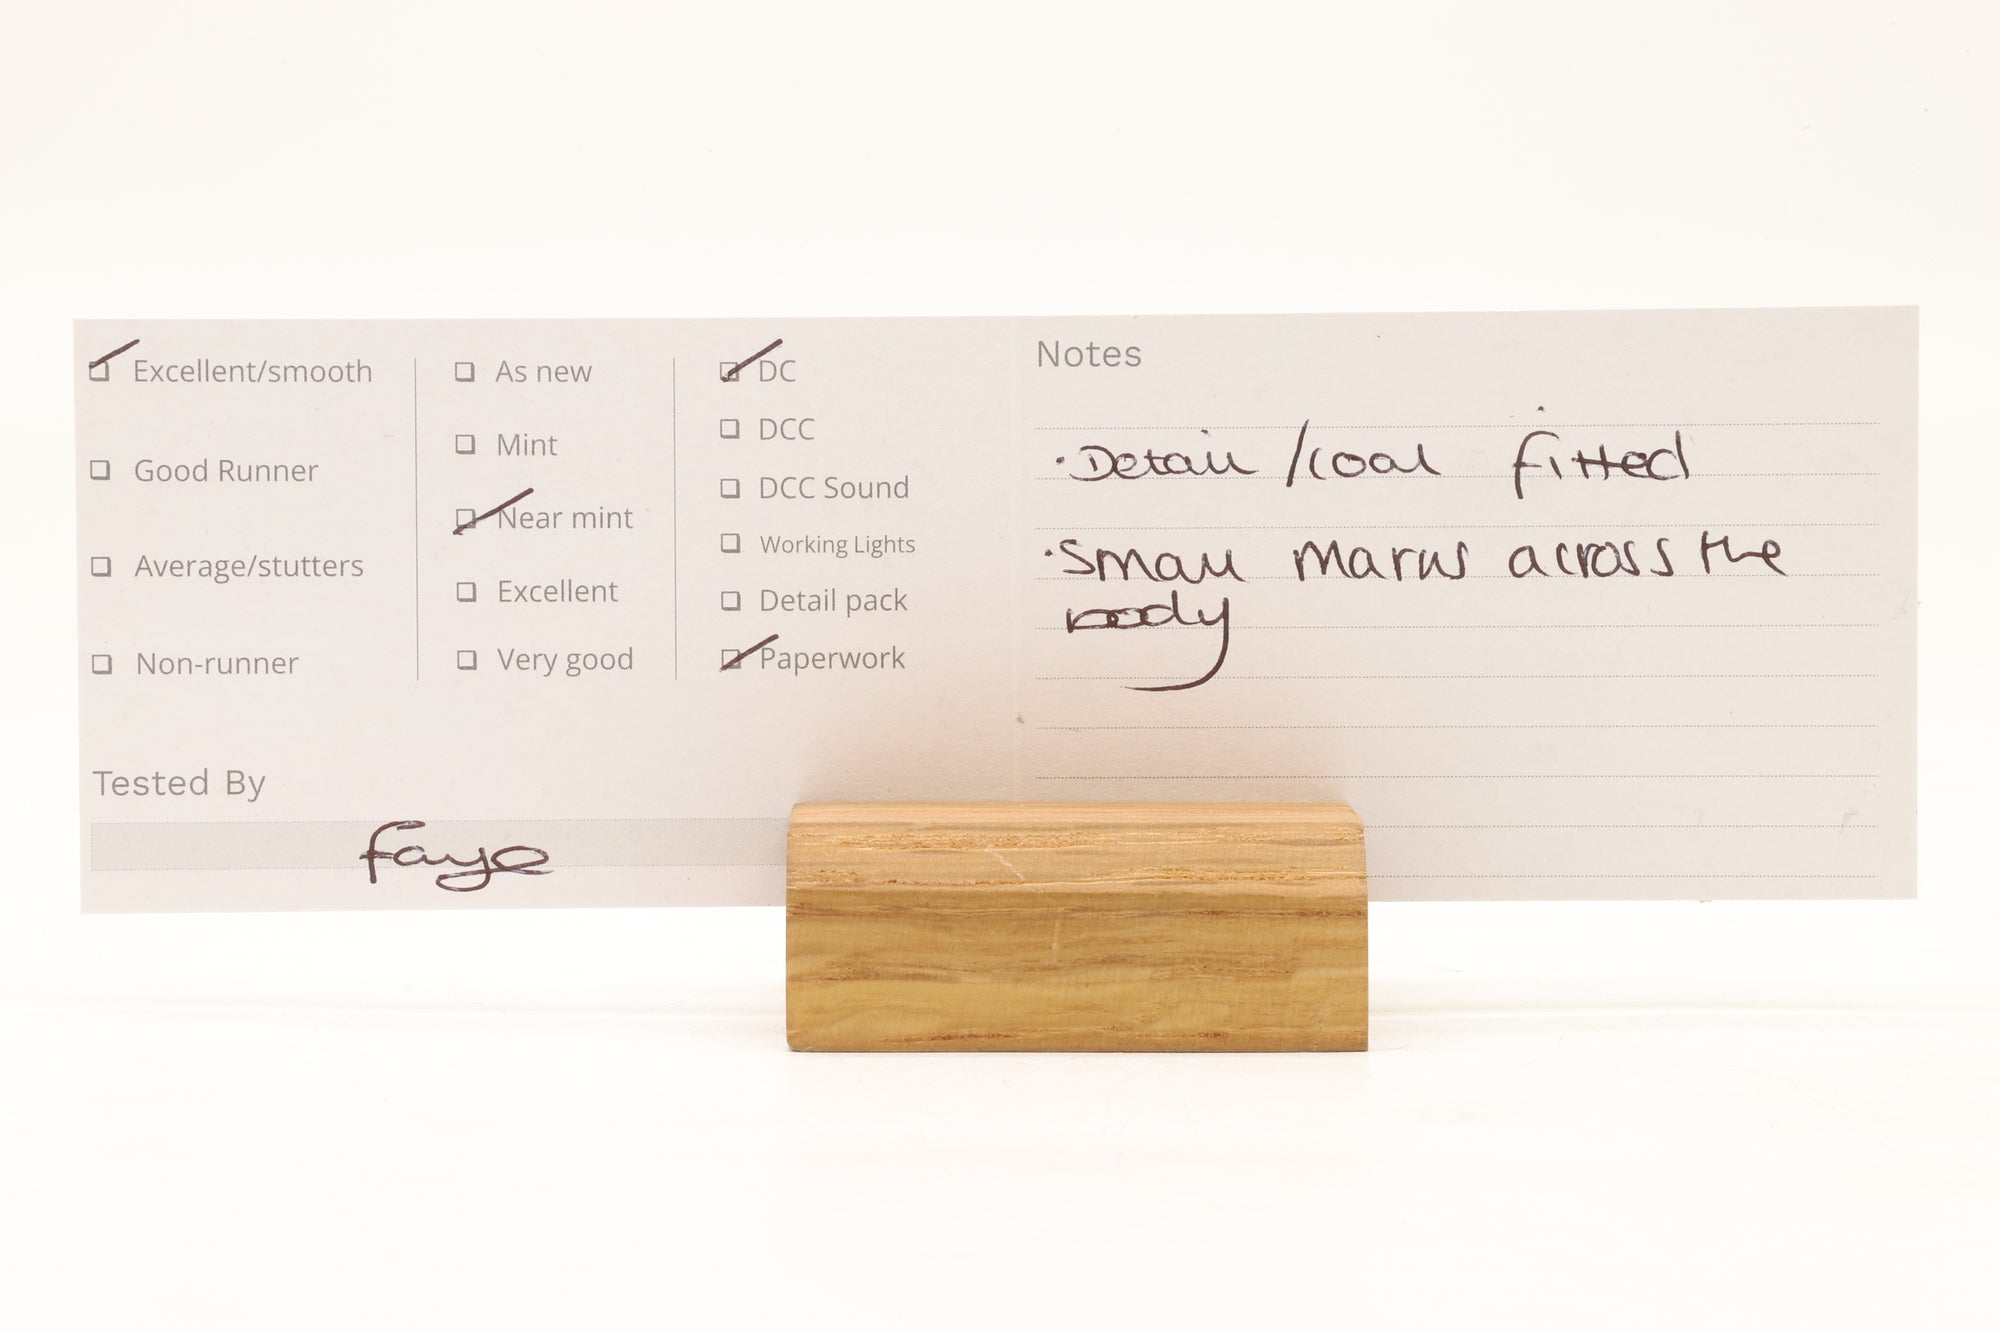 Excellent/smooth
Good Runner
Average/stutters
Non-runner
As new
Mint
Near mint
Excellent
Very good
DC
DCC
DCC Sound
Working Lights
Detail pack
Paperwork
Tested By
Faye
Notes
·Detail /coal fitted
·Small marks across the
body